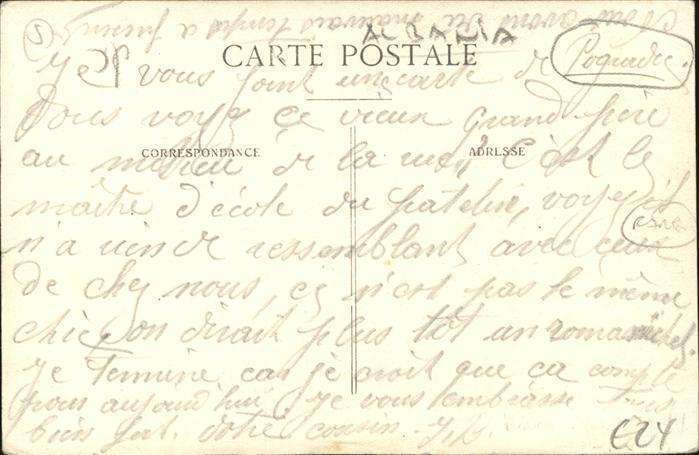 5
ALBANIA
nous avons du mauvais temps a
CARTE POSTALE
Je vous joint une carte de Pogradec.
vous voyez ce vieux grand père
CORRESPONDANCE
ADRESSE
au milieu de la rue, c'est le
maître d'école du patelin, voyez il
n'a rien de ressemblant avec ceux
de chez nous, ça n'est pas le même
chic on dirait plus tôt un romanichel.
Je termine car je croit que ça compte
pour aujourd'hui. Je vous embrasse tous
bien fort. votre cousin
E24